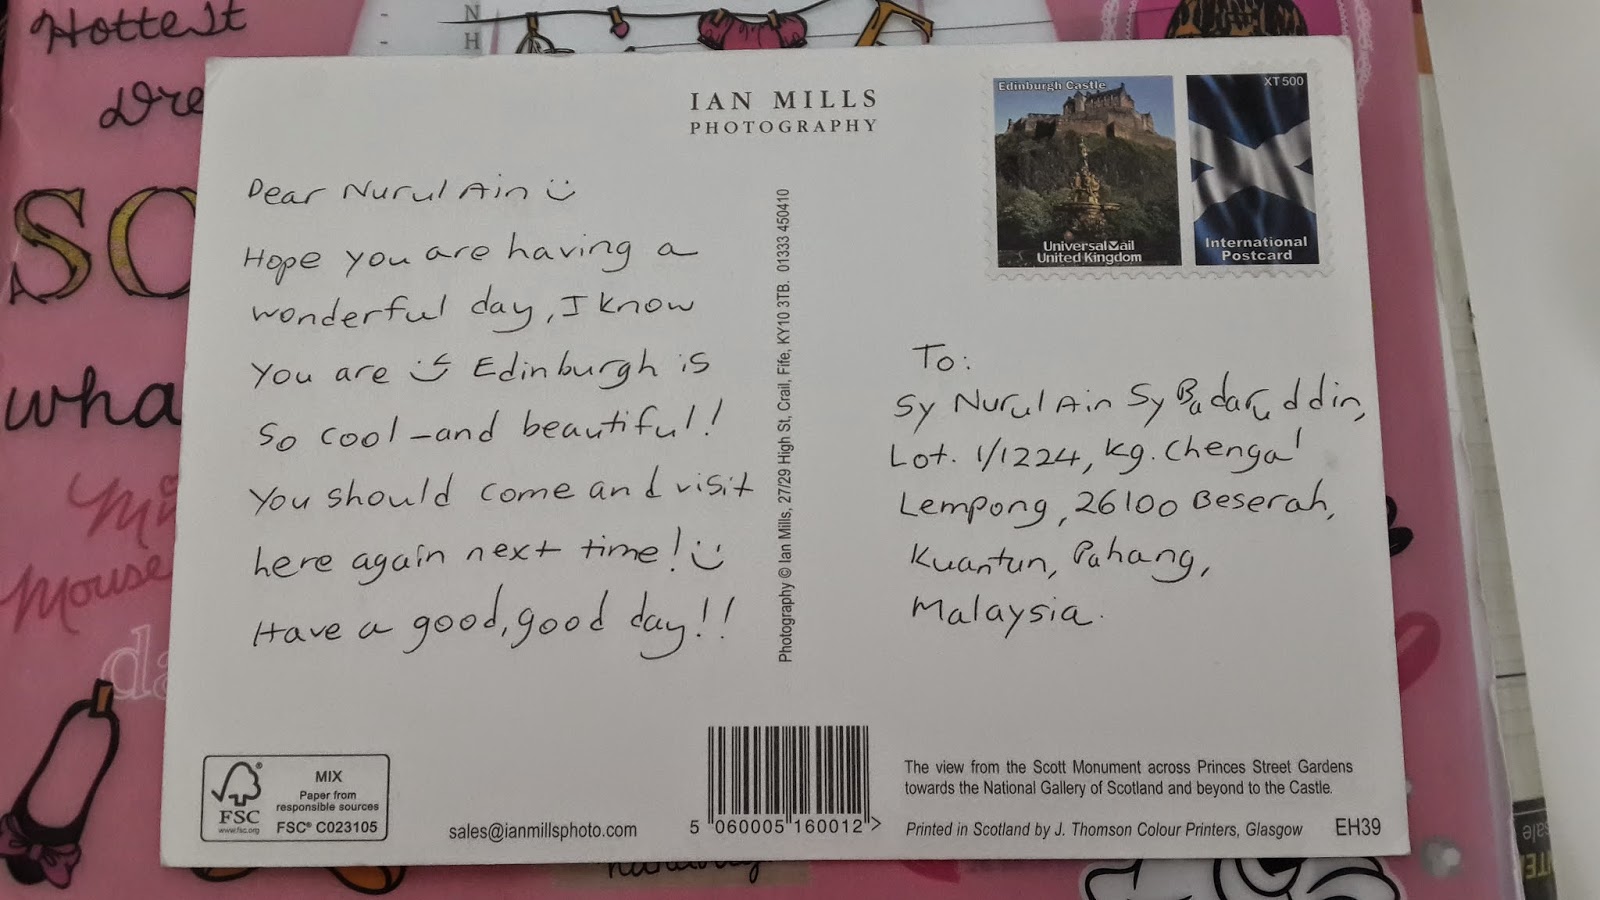 Hottest
Dre
SO
wha
Mi
Mouse
da
N
H
IAN MILLS
PHOTOGRAPHY
Edinburgh Castle
UniversalMail
United Kingdom
XT500
International
Postcard
Dear Nurul Ain
Hope you are having a
wonderful day, I know
you are Edinburgh is
so cool - and beautiful!
You should come and visit
here again next time!
Have a good, good day!!
Photography © Ian Mills, 27/29 High St, Crail, Fife, KY10 3TB. 01333 450410
To:
Sy Nurul Ain Sy Badaruddin,
Lot. 1/1224, Kg. Chengal
Lempong, 26100 Beserah,
Kuantun, Pahang,
Malaysia.
FSC
www.fsc.org
MIX
Paper from
responsible sources
FSC® C023105
sales@ianmillsphoto.com
5 060005 160012 >
The view from the Scott Monument across Princes Street Gardens
towards the National Gallery of Scotland and beyond to the Castle.
Printed in Scotland by J. Thomson Colour Printers, Glasgow
EH39